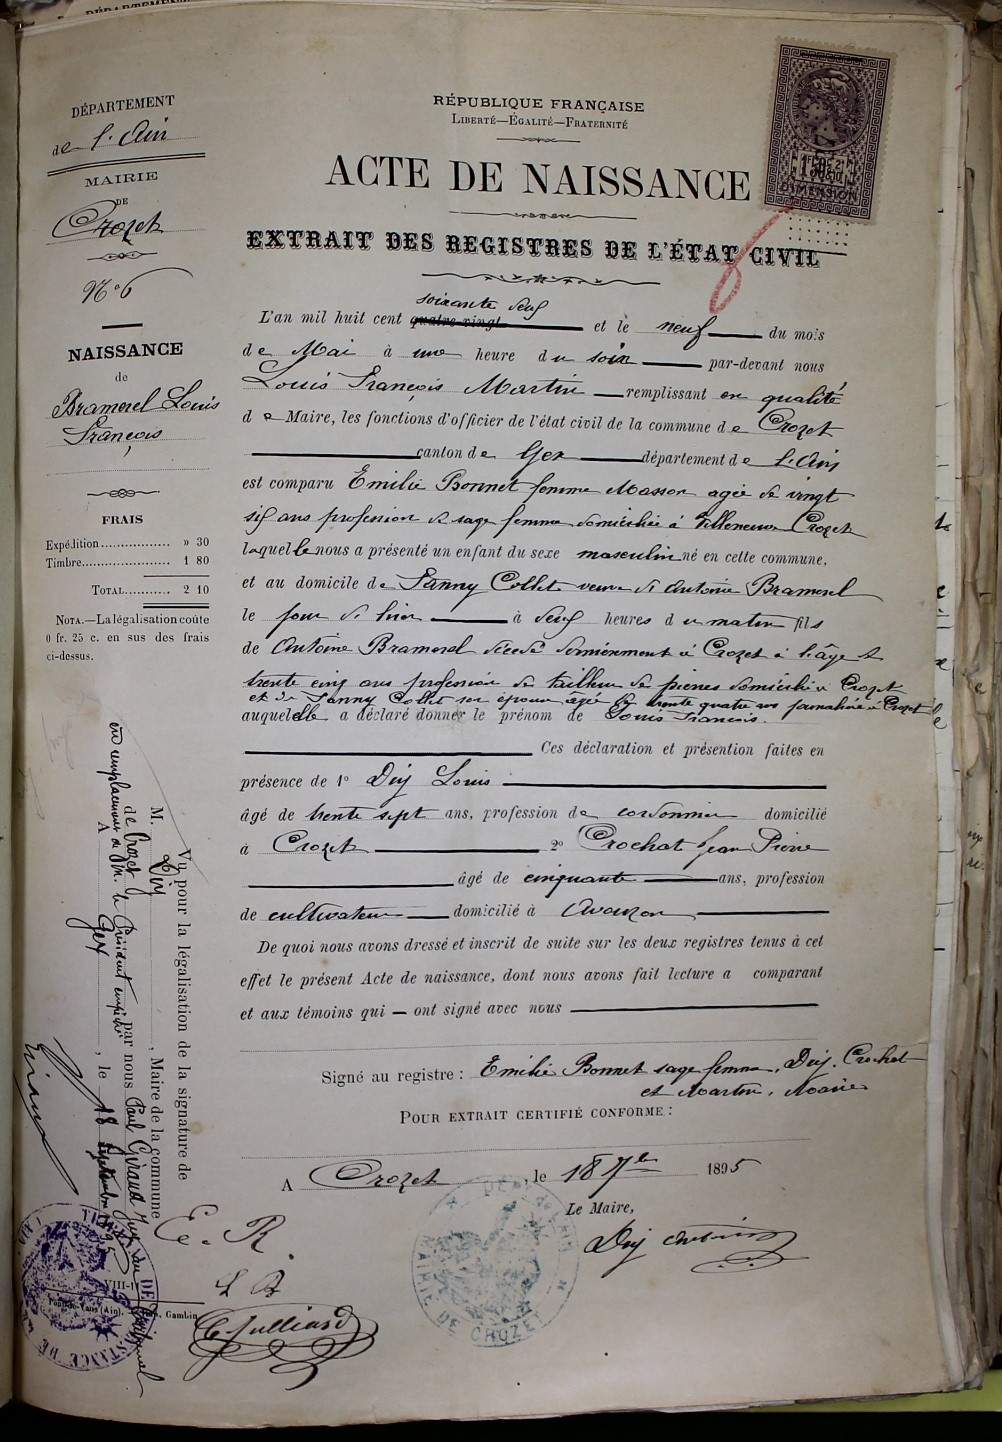 DÉPARTEMENT
de l'Ain
MAIRIE
DE
Crozet
N° 6
NAISSANCE
de
Bramerel Louis
François
FRAIS
Expédition ................. » 30
Timbre ...................... 1 80
TOTAL .......... 2 10
NOTA.—La légalisation coûte
0 fr. 25 c. en sus des frais
ci-dessus.
RÉPUBLIQUE FRANÇAISE
LIBERTÉ—ÉGALITÉ—FRATERNITÉ
ACTE DE NAISSANCE
DIMENSION
EXTRAIT DES REGISTRES DE L'ÉTAT CIVIL
soixante deux
L'an mil huit cent quatre-vingt et le neuf du mois
de Mai à une heure du soir par-devant nous
Louis François Martin remplissant en qualité
de Maire, les fonctions d'officier de l'état civil de la commune de Crozet
canton de Gex département de l'Ain
est comparu Emilie Bonnet femme Masson agée de vingt
six ans profession de sage femme domiciliée à Villeneuve Crozet
laquelle nous a présenté un enfant du sexe masculin né en cette commune,
et au domicile de Fanny Collet veuve de Antoine Bramerel
le jour de hier à deux heures du matin fils
de Antoine Bramerel décédé dernièrement à Crozet à l'âge de
trente cinq ans profession de tailleur de pierres domicilié à Crozet
et de Fanny Collet son épouse âgée de trente quatre ans journalière à Crozet
auquel elle a déclaré donner le prénom de Louis François.
Ces déclaration et présention faites en
présence de 1° Duy Louis
âgé de trente sept ans, profession de cordonnier domicilié
à Crozet 2° Crochat Jean Pierre
âgé de cinquante ans, profession
de cultivateur domicilié à Avouzon
De quoi nous avons dressé et inscrit de suite sur les deux registres tenus à cet
effet le présent Acte de naissance, dont nous avons fait lecture a comparant
et aux témoins qui — ont signé avec nous
Signé au registre : Emilie Bonnet sage femme, Duy, Crochat
et Martin, Maire
POUR EXTRAIT CERTIFIÉ CONFORME :
A Crozet, le 18 7bre 1895
Le Maire,
Duy
MAIRIE DE CROZET
Vu pour la légalisation de la signature de
M. Duy, Maire de la commune
de Crozet par nous Paul Giraud Juge
en remplacement de M. le Président empêché
A Gex, le 18 septembre 1895
Giraud
E. R.
VIII-1
Pont-de-Vaux (Ain). Gambin
C. Julliard